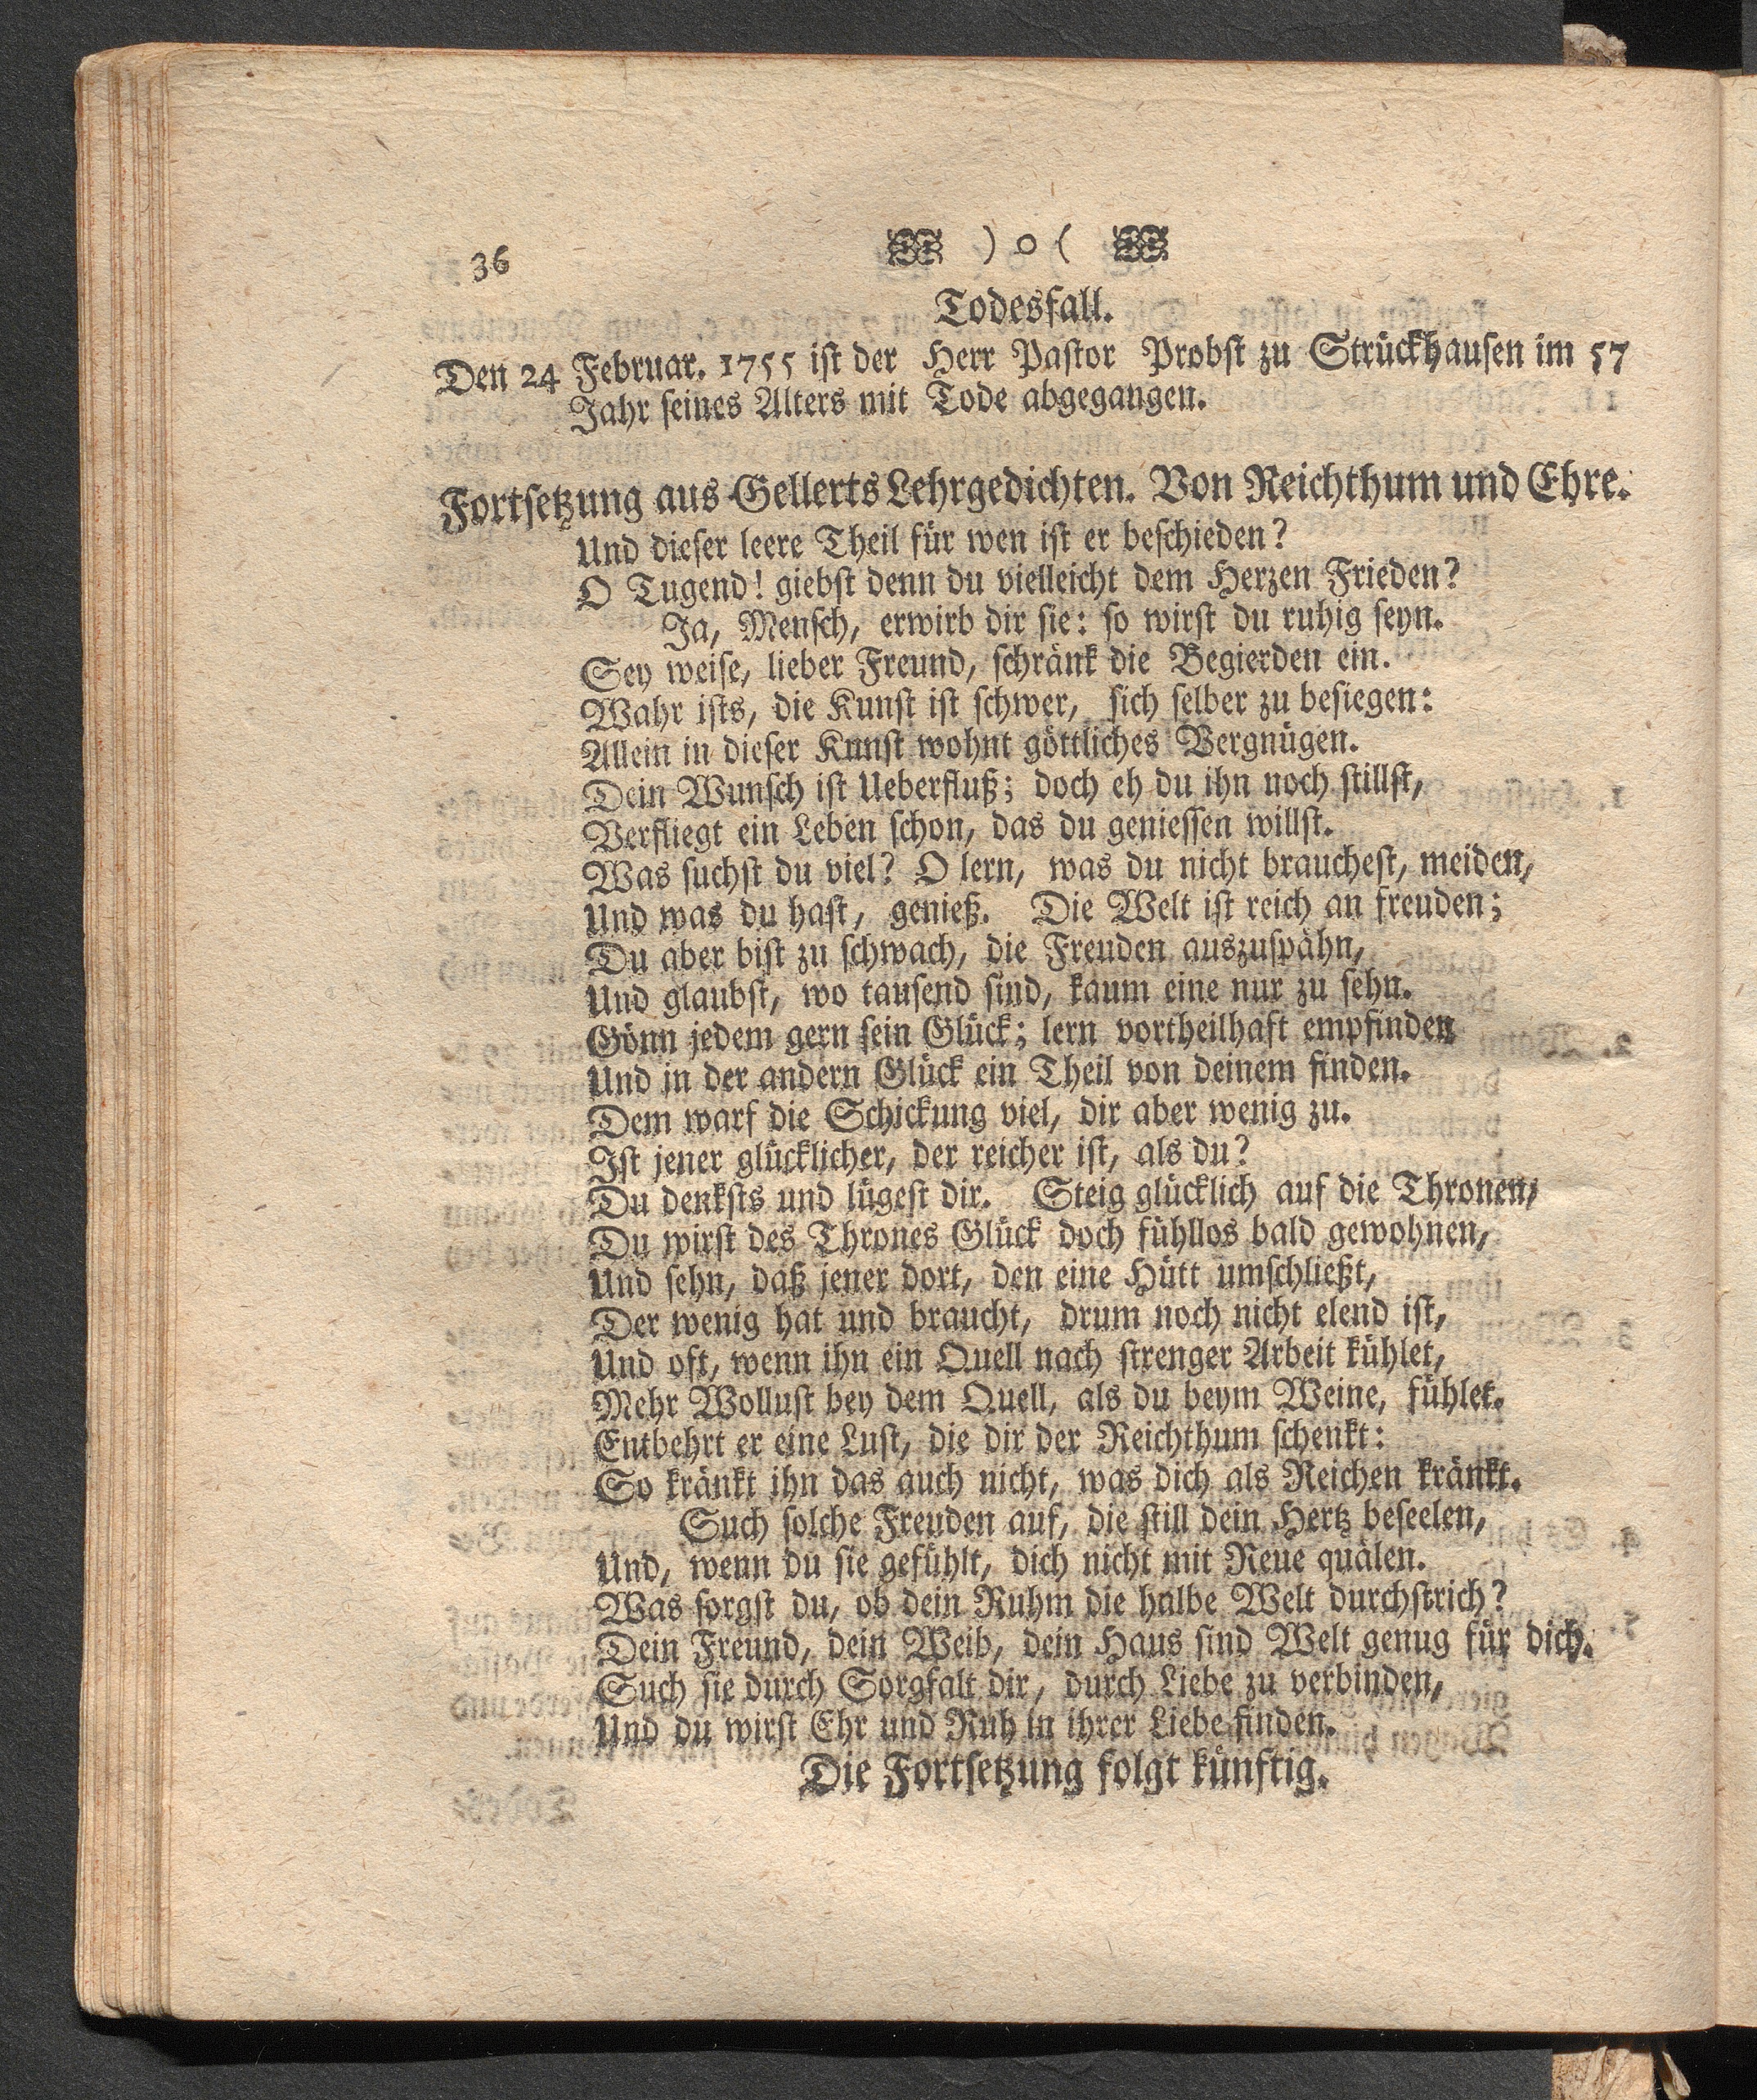 36
) o (
Todesfall.
Den 24 Februar. 1755 ist der Herr Pastor Probst zu Strückhausen im 57
Jahr seines Alters mit Tode abgegangen.
Fortsetzung aus Gellerts Lehrgedichten. Von Reichthum und Ehre.
Und dieser leere Theil für wen ist er beschieden?
O Tugend! giebst denn du vielleicht dem Herzen Frieden?
Ja, Mensch, erwirb dir sie: so wirst du ruhig seyn.
Sey weise, lieber Freund, schränk die Begierden ein.
Wahr ists, die Kunst ist schwer, sich selber zu besiegen:
Allein in dieser Kunst wohnt göttliches Vergnügen.
Dein Wunsch ist Ueberfluß; doch eh du ihn noch stillst,
Verfliegt ein Leben schon, das du geniessen willst.
Was suchst du viel? O lern, was du nicht brauchest, meiden,
Und was du hast, genieß. Die Welt ist reich an freuden;
Du aber bist zu schwach, die Freuden auszuspähn,
Und glaubst, wo tausend sind, kaum eine nur zu sehn.
Gönn jedem gern sein Glück; lern vortheilhaft empfinden
Und in der andern Glück ein Theil von deinem finden.
Dem warf die Schickung viel, dir aber wenig zu.
Ist jener glücklicher, der reicher ist, als du?
Du denksts und lügest dir. Steig glücklich auf die Thronen,
Du wirst des Thrones Glück doch fühllos bald gewohnen,
Und sehn, daß jener dort, den eine Hütt umschließt,
Der wenig hat und braucht, drum noch nicht elend ist,
Und oft, wenn ihn ein Quell nach strenger Arbeit kühlet,
Mehr Wollust bey dem Quell, als du beym Weine, fühlet.
Entbehrt er eine Lust, die dir der Reichthum schenkt:
So kränkt ihn das auch nicht, was dich als Reichen kränkt.
Such solche Freuden auf, die still dein Hertz beseelen,
Und, wenn du sie gefühlt, dich nicht mit Reue quälen.
Was sorgst du, ob dein Ruhm die halbe Welt durchstrich?
Dein Freund, dein Weib, dein Haus sind Welt genug für dich.
Such sie durch Sorgfalt dir, durch Liebe zu verbinden,
Und du wirst Ehr und Ruh in ihrer Liebe finden.
Die Fortsetzung folgt künftig.